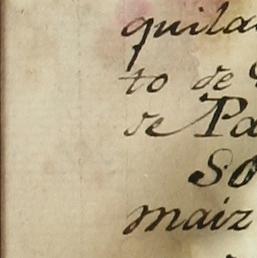 quila
to de
de Pa
So
maiz